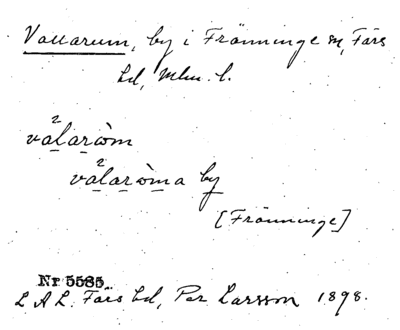 Vallarum, by i Fränninge sn, Färs
hd, Mlm. l.
va²laròm
va²laròma by
[Fränninge]
Nr 5585
L A L. Färs hd, Per Larsson 1898.